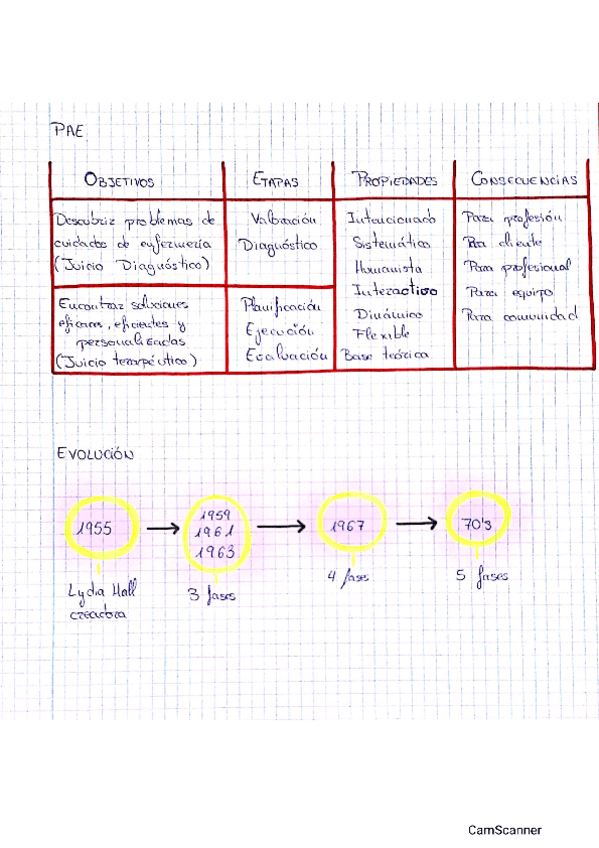 PAE
OBJETIVOS
ETAPAS
PROPIEDADES
CONSECUENCIAS
Descubrir problemas de
cuidados de enfermería
(Juicio Diagnóstico)
Valoración
Diagnóstico
Encontrar soluciones
eficaces, eficientes y
personalizadas
(Juicio terapéutico)
Planificación
Ejecución
Evaluación
Intencionado
Sistemático
Humanista
Interactivo
Dinámico
Flexible
Base teórica
Para profesión
Para cliente
Para profesional
Para equipo
Para comunidad
EVOLUCIÓN
1955
1959
1961
1963
1967
70's
Lydia Hall
creadora
3 fases
4 fases
5 fases
CamScanner